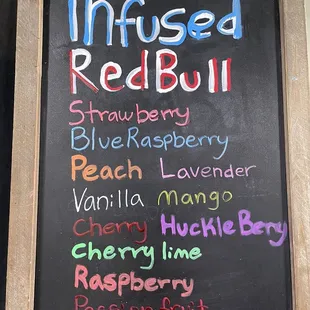 Infused
RedBull
Strawberry
Blue Raspberry
Peach Lavender
Vanilla Mango
Cherry Huckle Bery
Cherry lime
Raspberry
Passion fruit